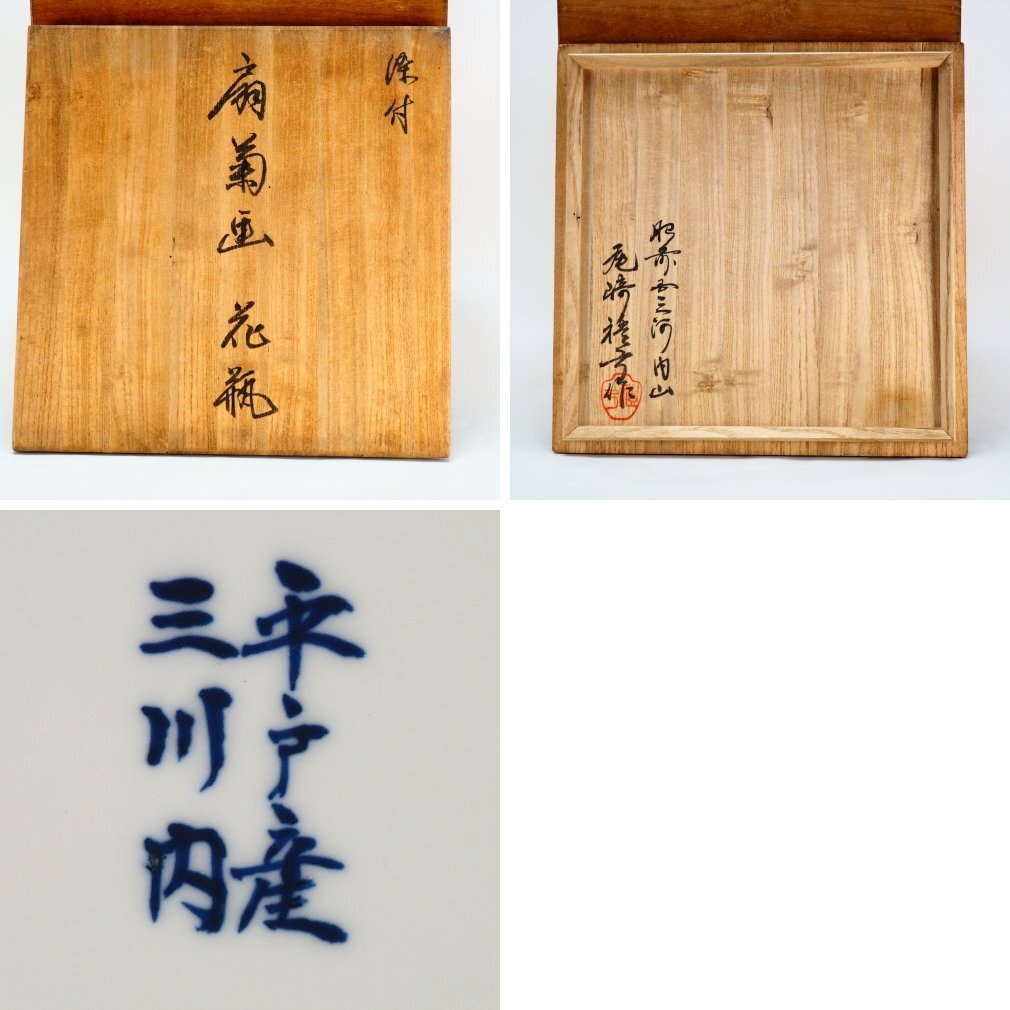 染付
扇菊画 花瓶
肥前国三河内山
尾崎 作
平戸産
三川内